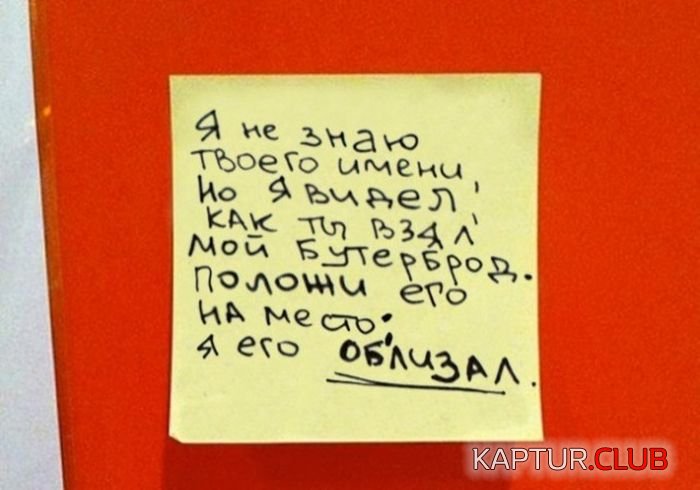 Я не знаю
твоего имени,
но я видел,
как ты взял
мой бутерброд.
Положи его
на место.
Я его ОБЛИЗАЛ.
KAPTUR.CLUB